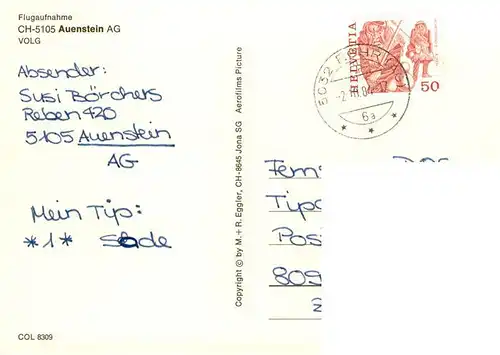 Flugaufnahme
CH-5105 Auenstein AG
VOLG
Absender:
Susi Börchers
Reben 420
5105 Auenstein
AG
Mein Tip:
*1*
COL 8309
Copyright © by M. + R. Eggler, CH-8645 Jona SG Aerofilms Picture
HELVETIA
50
5032
6a
Tip
Pos
809